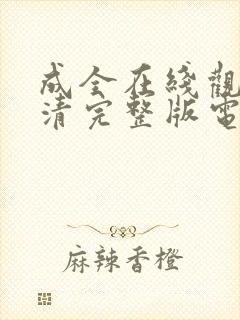 成全在綫觀
清完整版電
麻辣香橙